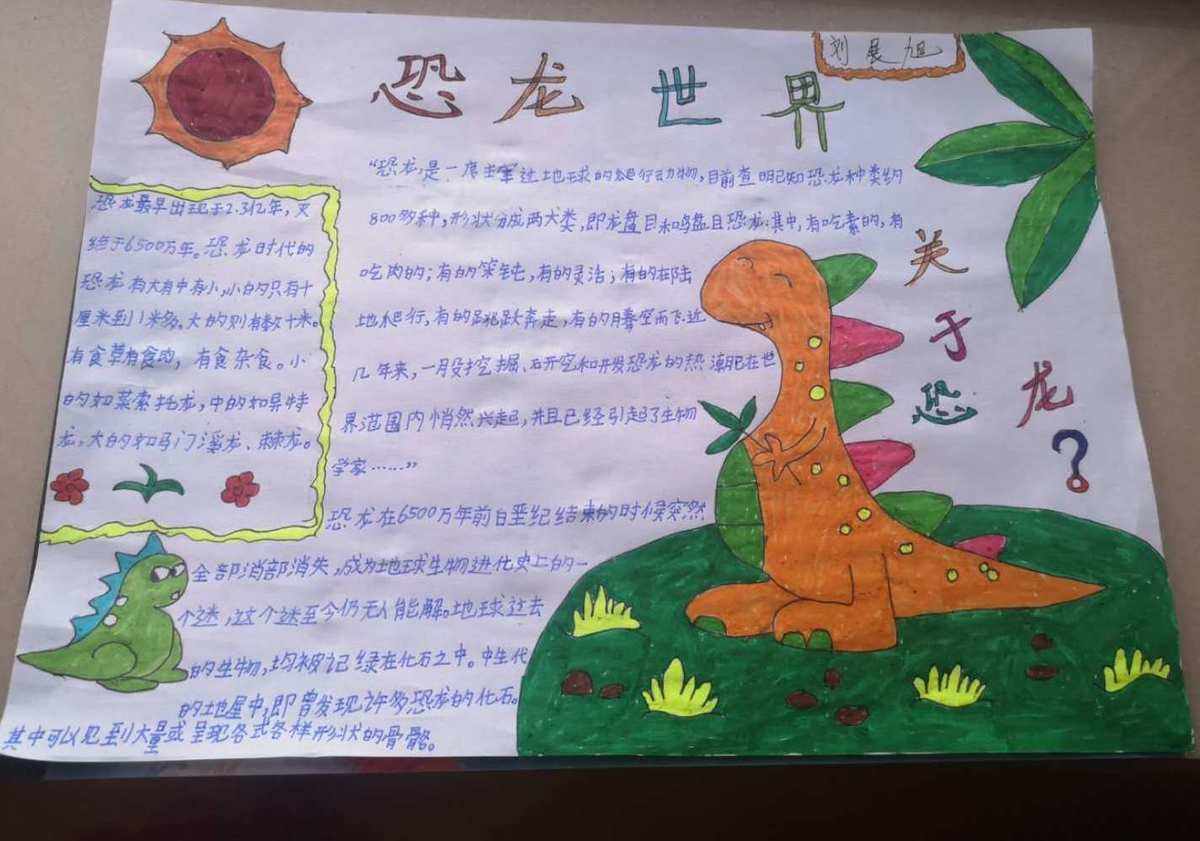 恐龙世界
刘展旭
恐龙最早出现于2.3亿年，灭
终于6500万年。恐龙时代的
恐龙有大有中有小，小的只有十
厘米到1米多。大的则有数十米。
有食草有食肉，有食杂食。小
的如莱索托龙，中的如异特
龙，大的如马门溪龙、棘龙。
“恐龙是一度主宰过地球的爬行动物，目前查明已知恐龙种类约
800多种，形状分成两大类，即龙盘目和鸟盘目恐龙其中，有吃素的，有
吃肉的；有的笨钝，有的灵活；有的在陆
地爬行，有的跳跃奔走，有的腾空而飞近
几年来，一月股挖掘、研究和开发恐龙的热潮肥在世
界范围内悄然兴起，并且已经引起了生物
学家……”
恐龙在6500万年前白垩纪结束的时候突然
全部消部消失，成为地球生物进化史上的一
个迷，这个迷至今仍无人能解。地球过去
的生物，均被记绿在化石之中。中生代
的地屋中，即曾发现许多恐龙的化石。
其中可以见到大量或呈现各式各样形状的骨骼。
关于恐龙？